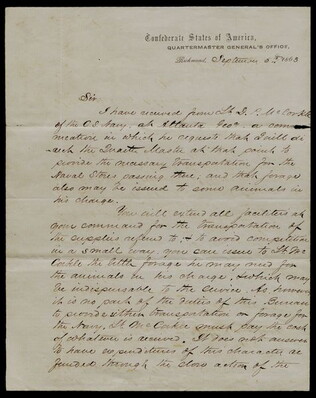 Confederate States of America,
QUARTERMASTER GENERAL'S OFFICE,
Richmond, September 5th 1863
Sir
I have received from Lt D. P. McCorkle
of the C.S. Navy, at Atlanta Ga, a commu
nication in which he requests that I will di
rect the Quarter Master at that point to
provide the necessary transportation for the
Naval Stores passing there, and that forage
also may be issued to some animals in
his charge.
You will extend all facilities at
your command for the transportation of
the supplies referred to, & to avoid competition
in a small way you can issue to Lt Mc
Corkle the little forage he may need for
the animals in his charge, & which may
be indispensable to the service. As however
it is no part of the duties of this Bureau
to provide either transportation or forage for
the Navy, Lt McCorkle must pay the cost
of whatever is received. It does not answer
to have expenditures of this character de
frayed through the action of the